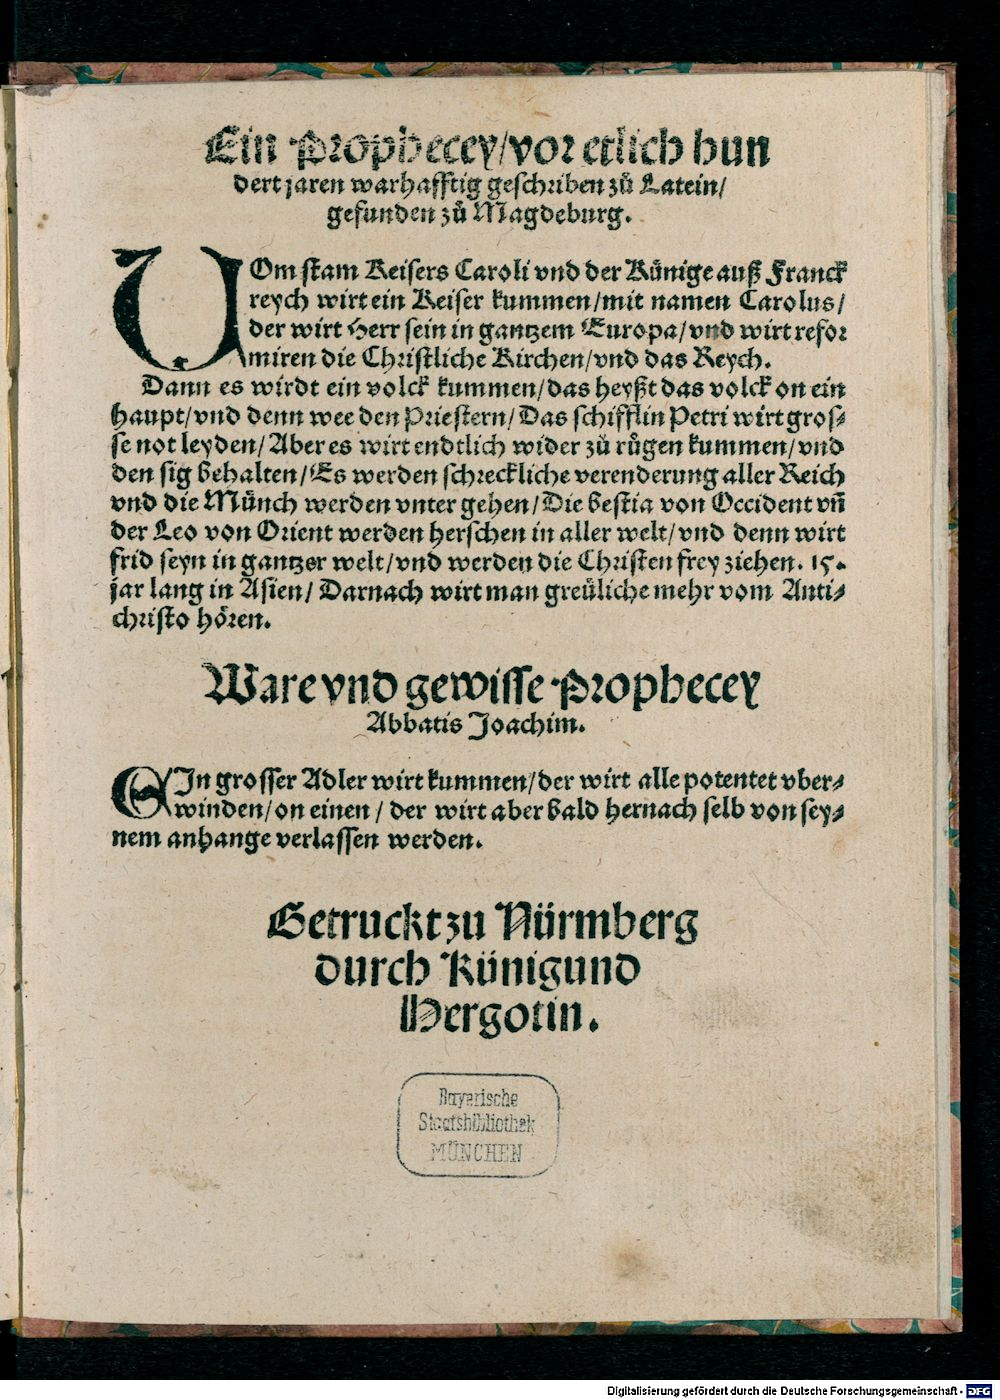 Ein Prophecey/vor etlich hun
dert jaren warhafftig geschriben zů Latein/
gefunden zů Magdeburg.
VOm stam Keisers Caroli vnd der Künige auß Franck
reych wirt ein Keiser kummen/mit namen Carolus/
der wirt Herr sein in gantzem Europa/vnd wirt refor
miren die Christliche Kirchen/vnd das Reych.
Dann es wirdt ein volck kummen/das heyßt das volck on ein
haupt/vnd denn wee den Priestern/Das schifflin Petri wirt gros⸗
se not leyden/Aber es wirt endtlich wider zů růgen kummen/vnd
den sig behalten/Es werden schreckliche verenderung aller Reich
vnd die Münch werden vnter gehen/Die bestia von Occident vñ
der Leo von Orient werden herschen in aller welt/vnd denn wirt
frid seyn in gantzer welt/vnd werden die Christen frey ziehen. 15.
jar lang in Asien/ Darnach wirt man greüliche mehr vom Anti⸗
christo hören.
Ware vnd gewisse Prophecey
Abbatis Joachim.
EIn grosser Adler wirt kummen/der wirt alle potentet vber⸗
winden/on einen/ der wirt aber bald hernach selb von sey⸗
nem anhange verlassen werden.
Getruckt zu Nürmberg
durch Künigund
Hergotin.
Bayerische
Staatsbibliothek
MÜNCHEN
Digitalisierung gefördert durch die Deutsche Forschungsgemeinschaft - DFG